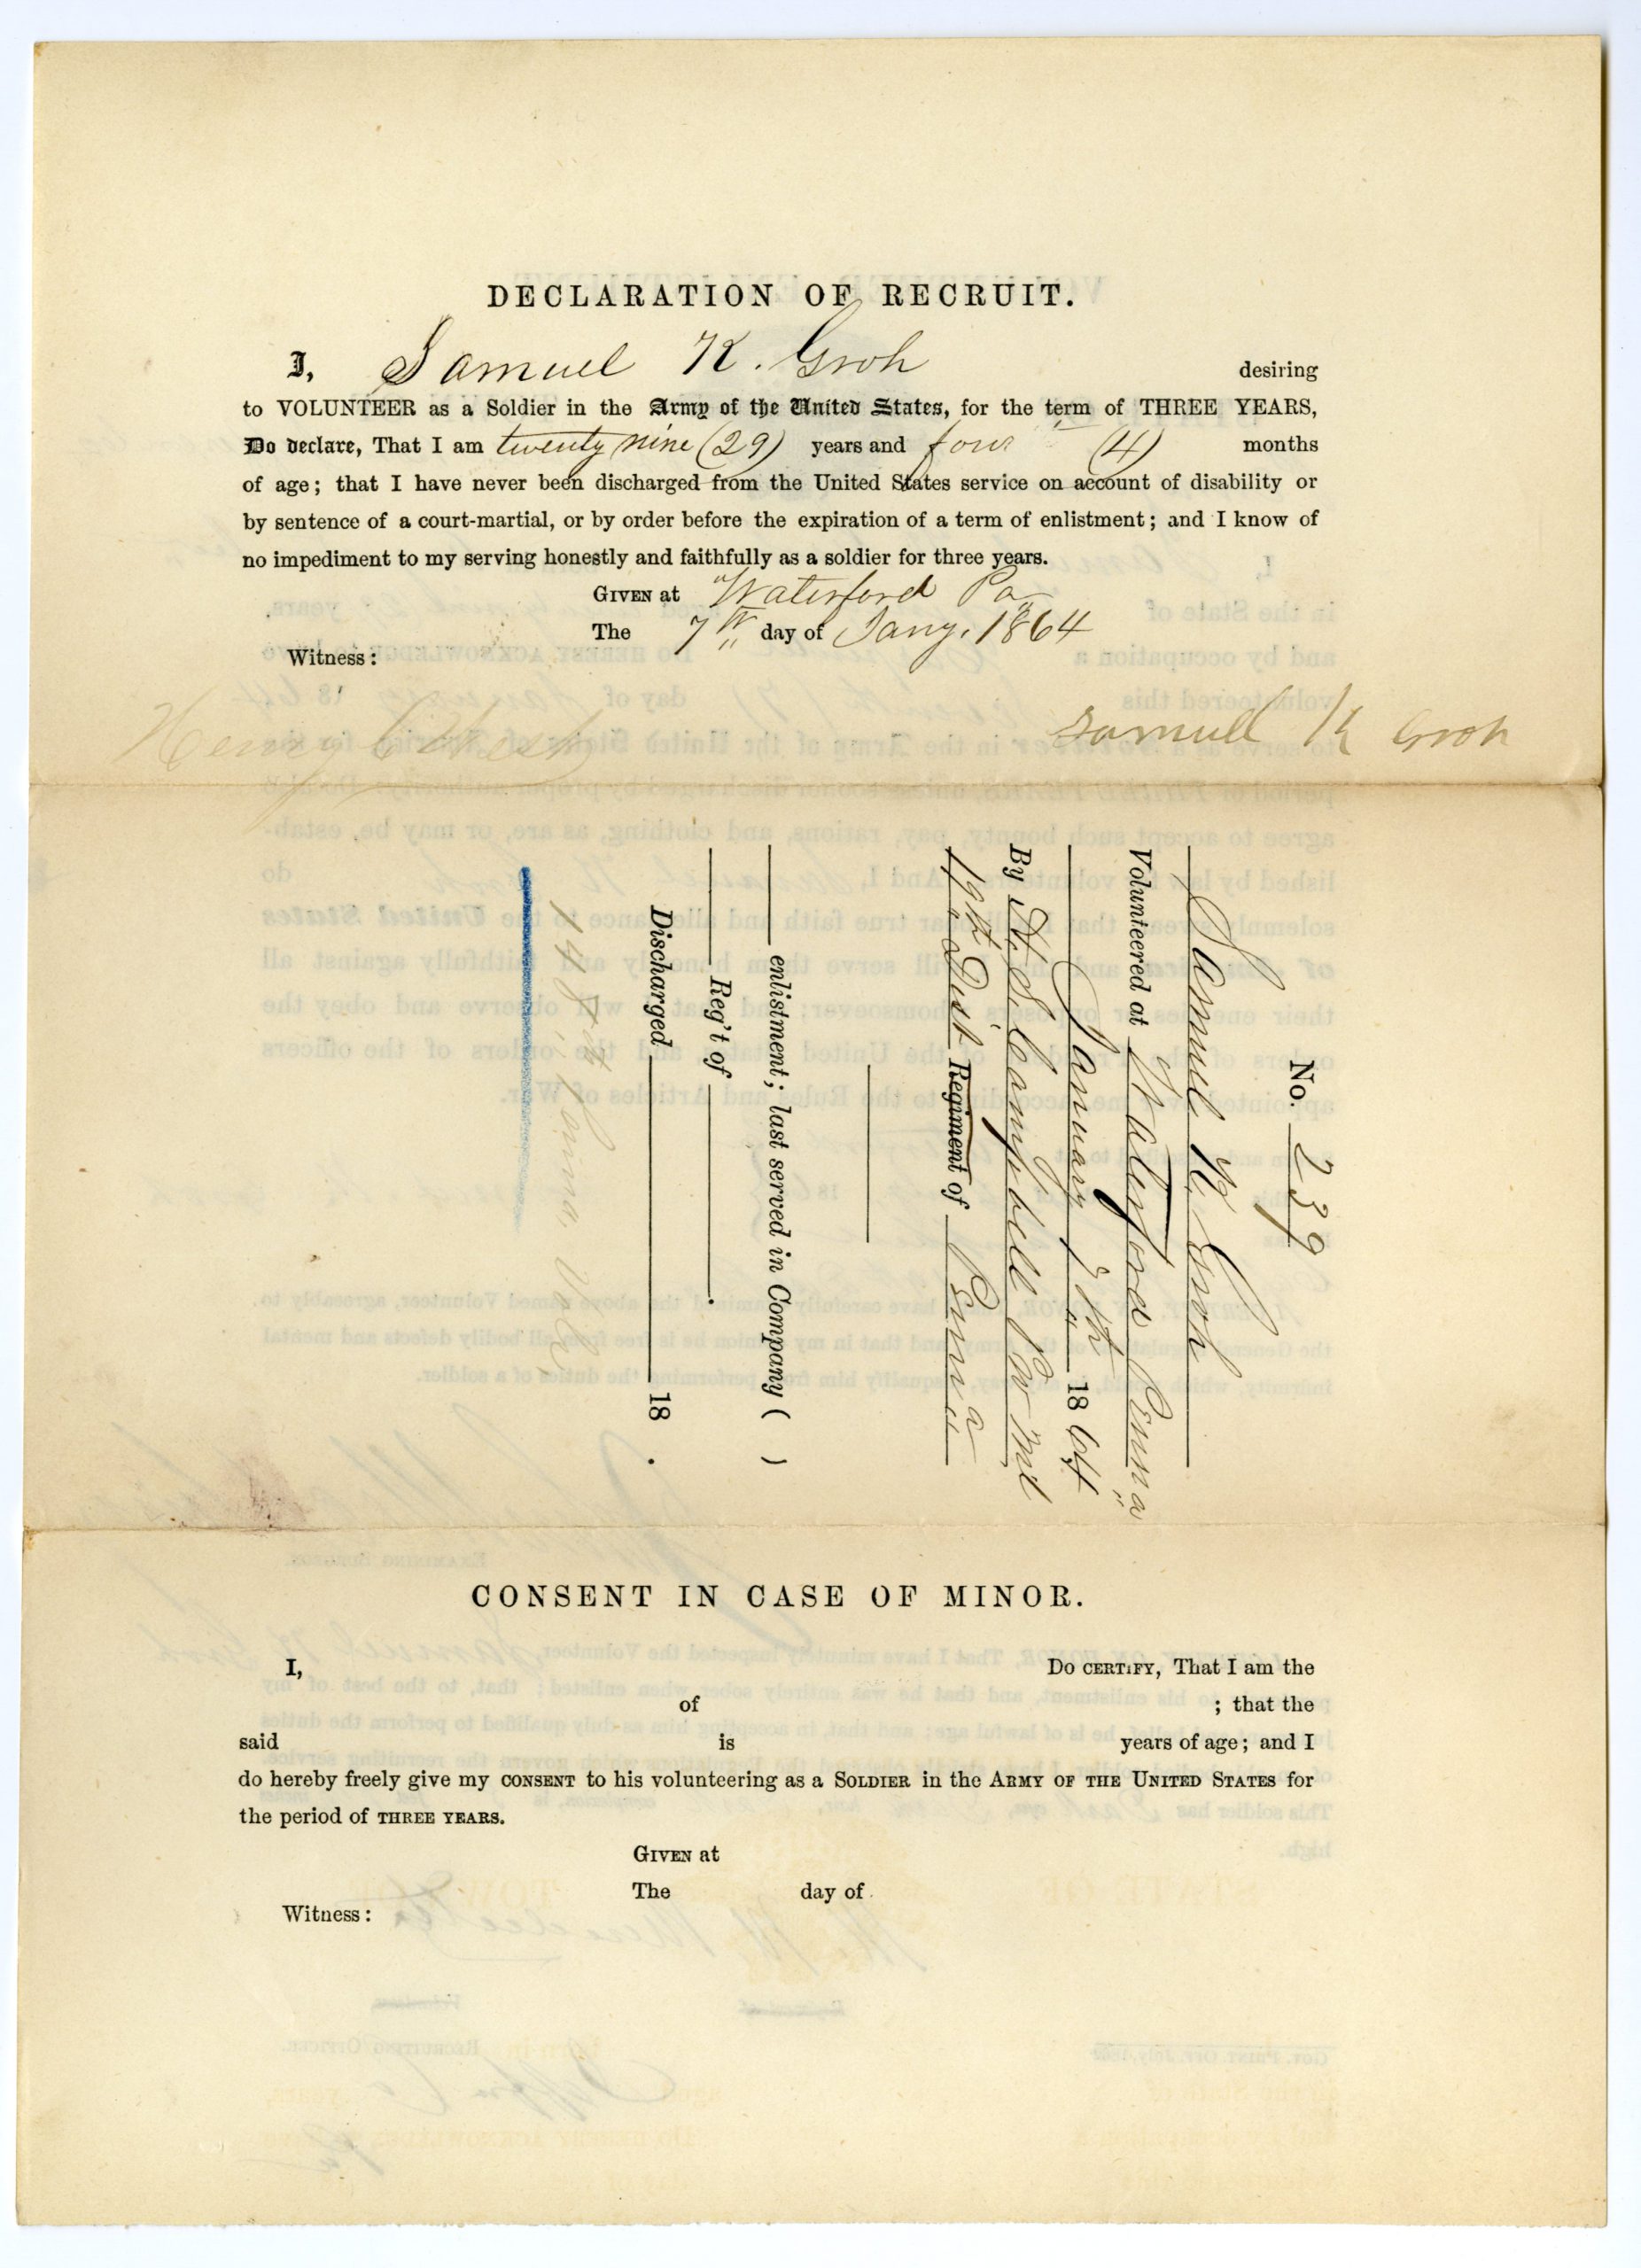 DECLARATION OF RECRUIT.
I, Samuel K. Groh desiring
to VOLUNTEER as a Soldier in the Army of the United States, for the term of THREE YEARS,
Do declare, That I am twenty nine (29) years and four (4) months
of age; that I have never been discharged from the United States service on account of disability or
by sentence of a court-martial, or by order before the expiration of a term of enlistment; and I know of
no impediment to my serving honestly and faithfully as a soldier for three years.
GIVEN at Waterford Pa
The 7th day of Jany. 1864
Witness:
Henry
Samuel K Groh
No. 239
Samuel K. Groh
Volunteered at Waterford Penna
January 7th 1864
By H. S. Campbell Pro Ml
19th Dist Regiment of Penna
enlistment; last served in Company ( )
Reg't of .
Discharged 18 .
CONSENT IN CASE OF MINOR.
I, DO CERTIFY, That I am the
of ; that the
said is years of age; and I
do hereby freely give my CONSENT to his volunteering as a SOLDIER in the ARMY OF THE UNITED STATES for
the period of THREE YEARS.
GIVEN at
The day of
Witness: